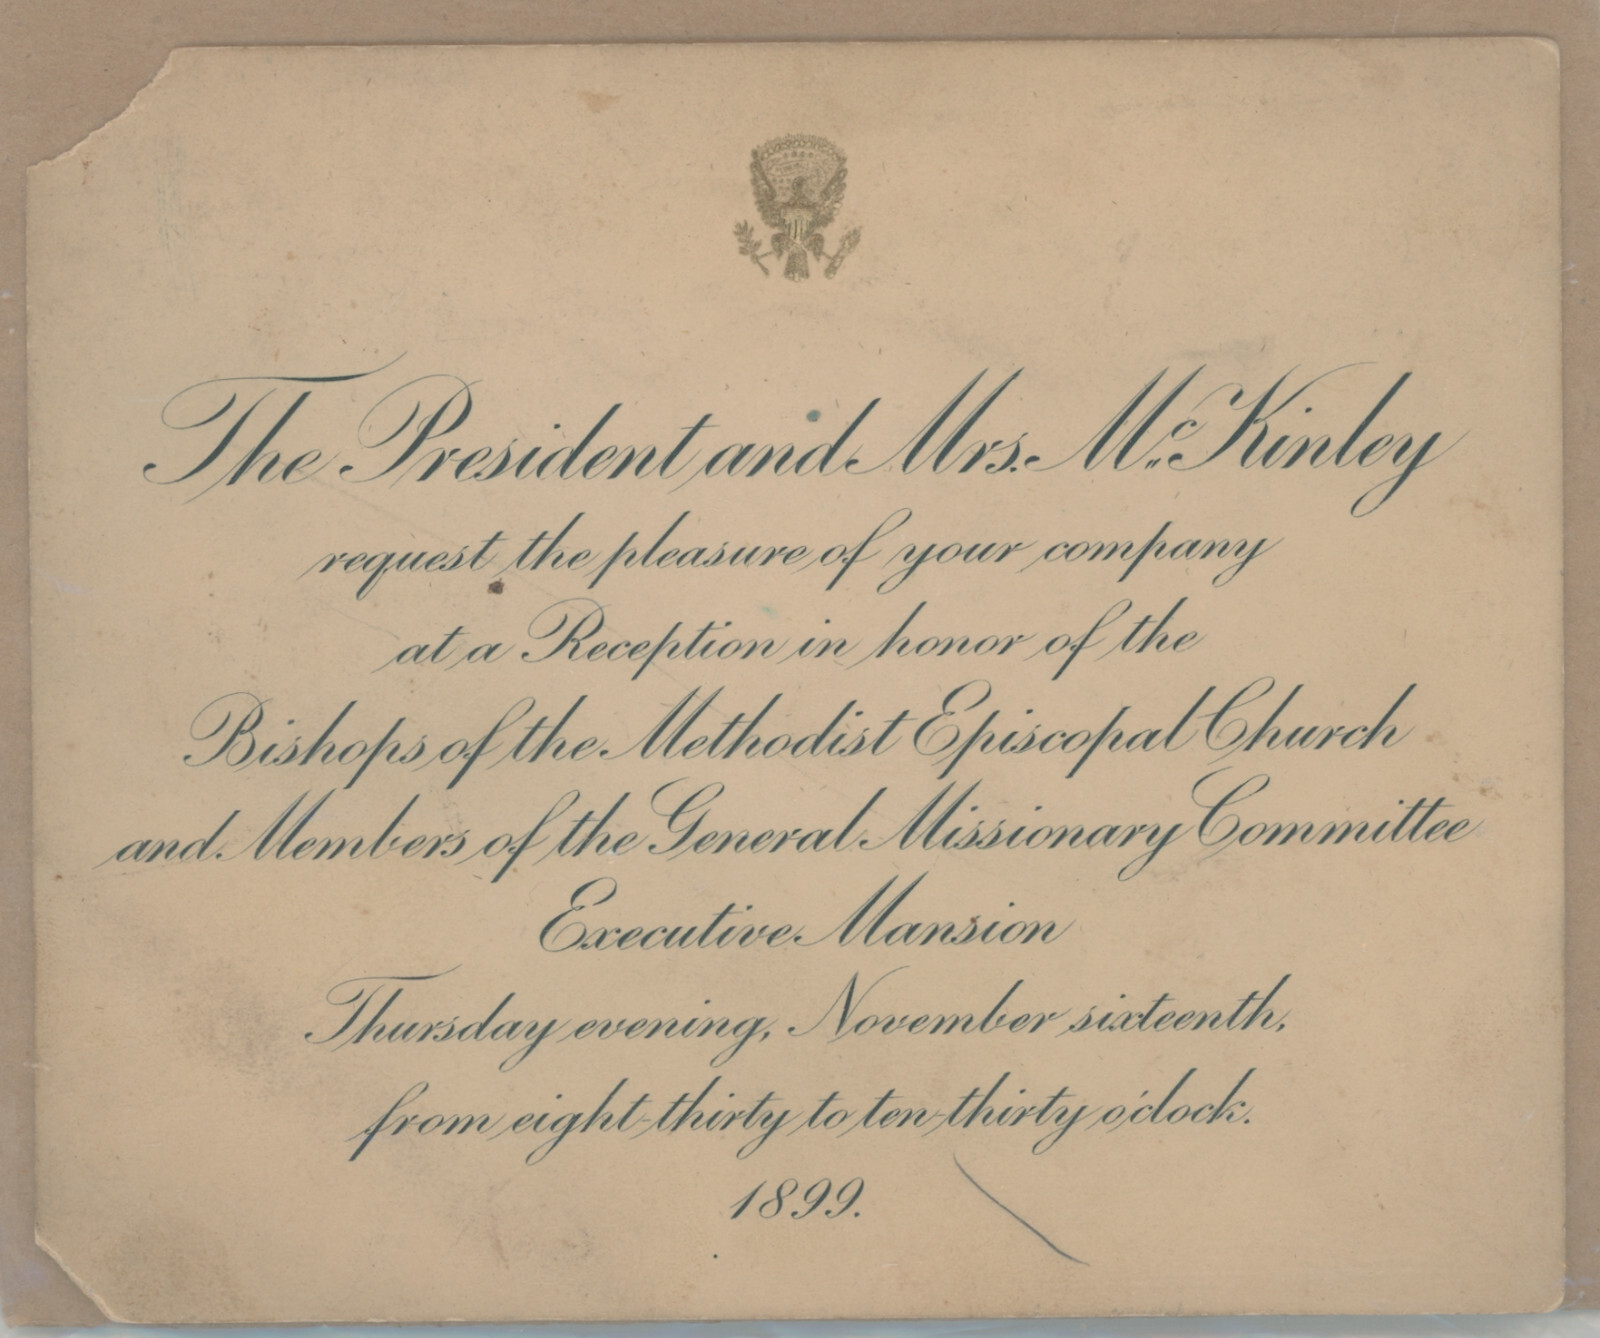 The President and Mrs. McKinley
request the pleasure of your company
at a Reception in honor of the
Bishops of the Methodist Episcopal Church
and Members of the General Missionary Committee
Executive Mansion
Thursday evening, November sixteenth,
from eight-thirty to ten-thirty o'clock.
1899.